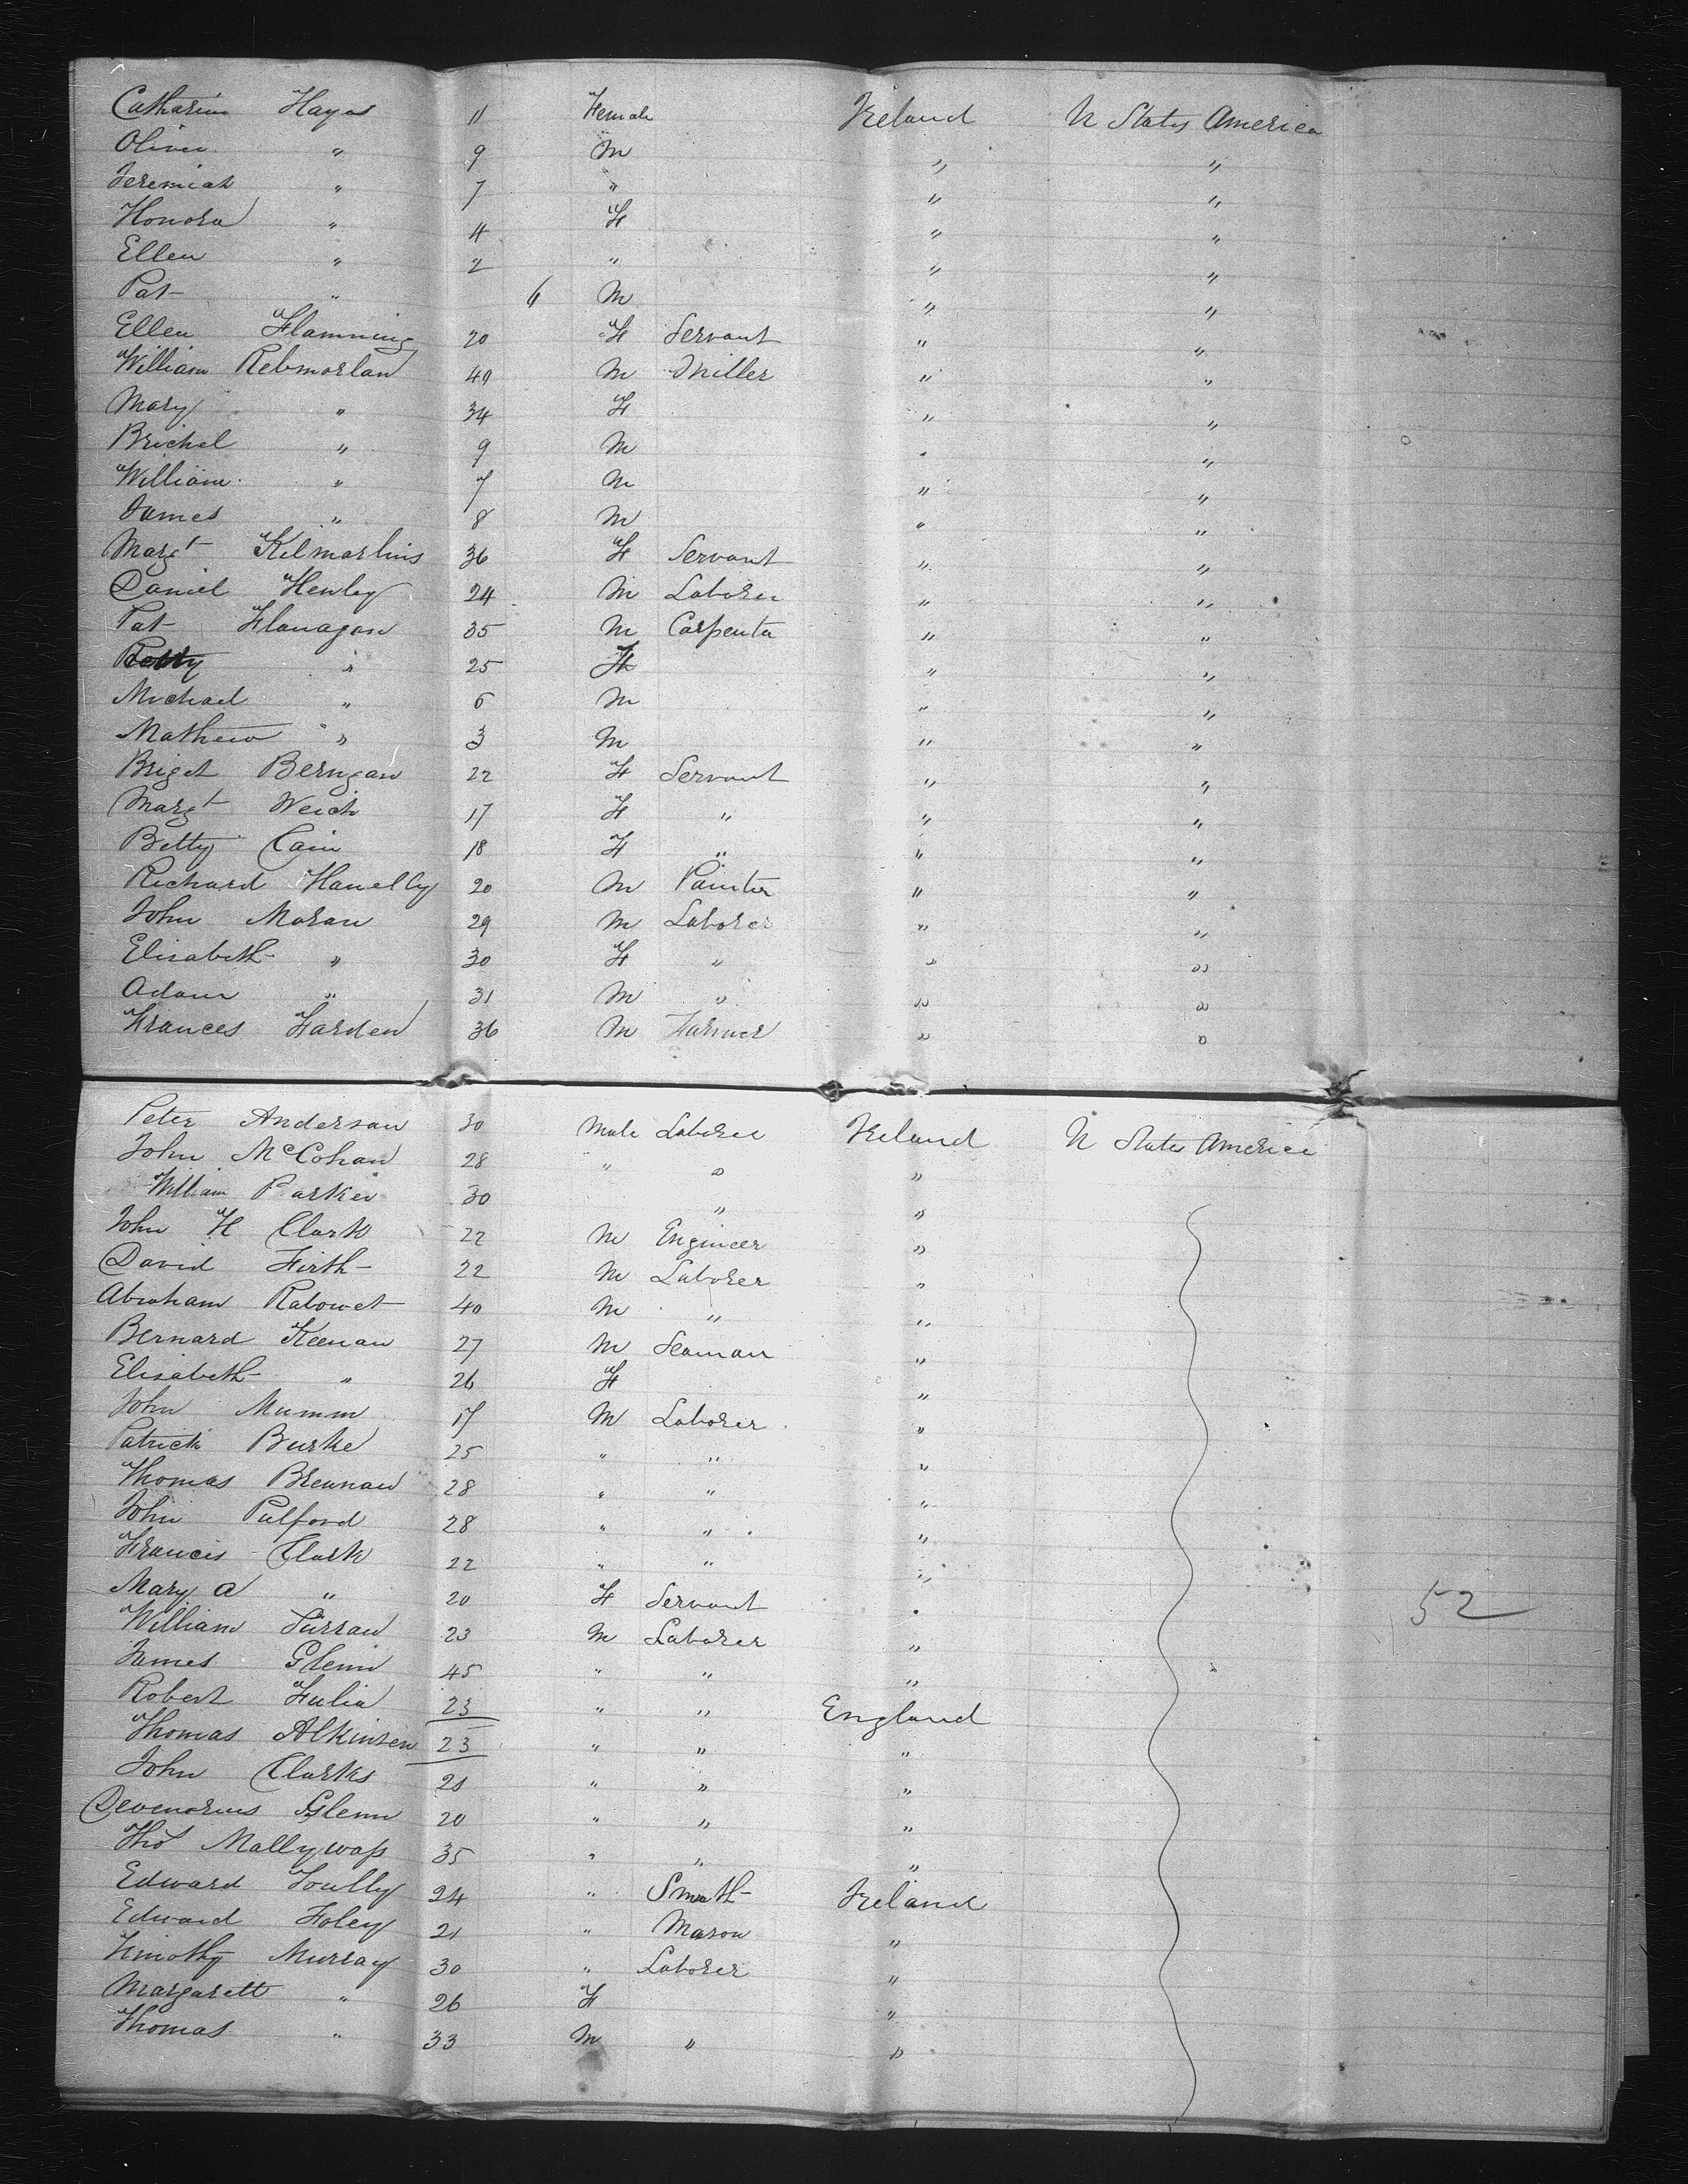 Catharine Hayes 11 Female Ireland U States America
Oliver " 9 M " "
Jeremiah " 7 " " "
Honora " 4 F " "
Ellen " 2 " " "
Pat " 6 M " "
Ellen Flamming 20 F Servant " "
William Rebmorlan 40 M Miller " "
Mary " 34 F " "
Brichel " 9 M " "
William " 7 M " "
James " 8 M " "
Margt Kilmarlins 36 F Servant " "
Daniel Henley 24 M Laborer " "
Pat Flanagan 35 M Carpenter " "
" 25 F " "
Michael " 6 M " "
Mathew " 3 M " "
Briget Berngan 22 F Servant " "
Margt Weich 17 F " " "
Betty Cain 18 F " " "
Richard Hanelly 20 M Painter " "
John Moran 29 M Laborer " "
Elisabeth " 30 F " " "
Adam " 31 M " " "
Frances Farden 36 M Farmer " "
Peter Anderson 30 Male Laborer Ireland U States America
John McCohan 28 " " "
William Parker 30 " "
John H Clark 22 M Engineer "
David Firth 22 M Laborer "
Abraham Rabowet 40 M " "
Bernard Keenan 27 M Seaman "
Elisabeth " 26 F "
John Mumm 17 M Laborer "
Patrick Burke 25 " " "
Thomas Brennan 28 " " "
John Pulford 28 " " "
Francis Clark 22 " " "
Mary A " 20 F Servant "
William Surran 23 M Laborer "
James Glenn 45 " " "
Robert Fulia 23 " " England
Thomas Alkinsen 23 " " "
John Clarks 21 " " "
Devenorius Glenn 20 " " "
Thos Mallywass 35 " " "
Edward Toully 24 " Smith Ireland
Edward Foley 21 " Mason "
Timothy Murray 30 " Laborer "
Margarett " 26 F "
Thomas " 33 M " "
52